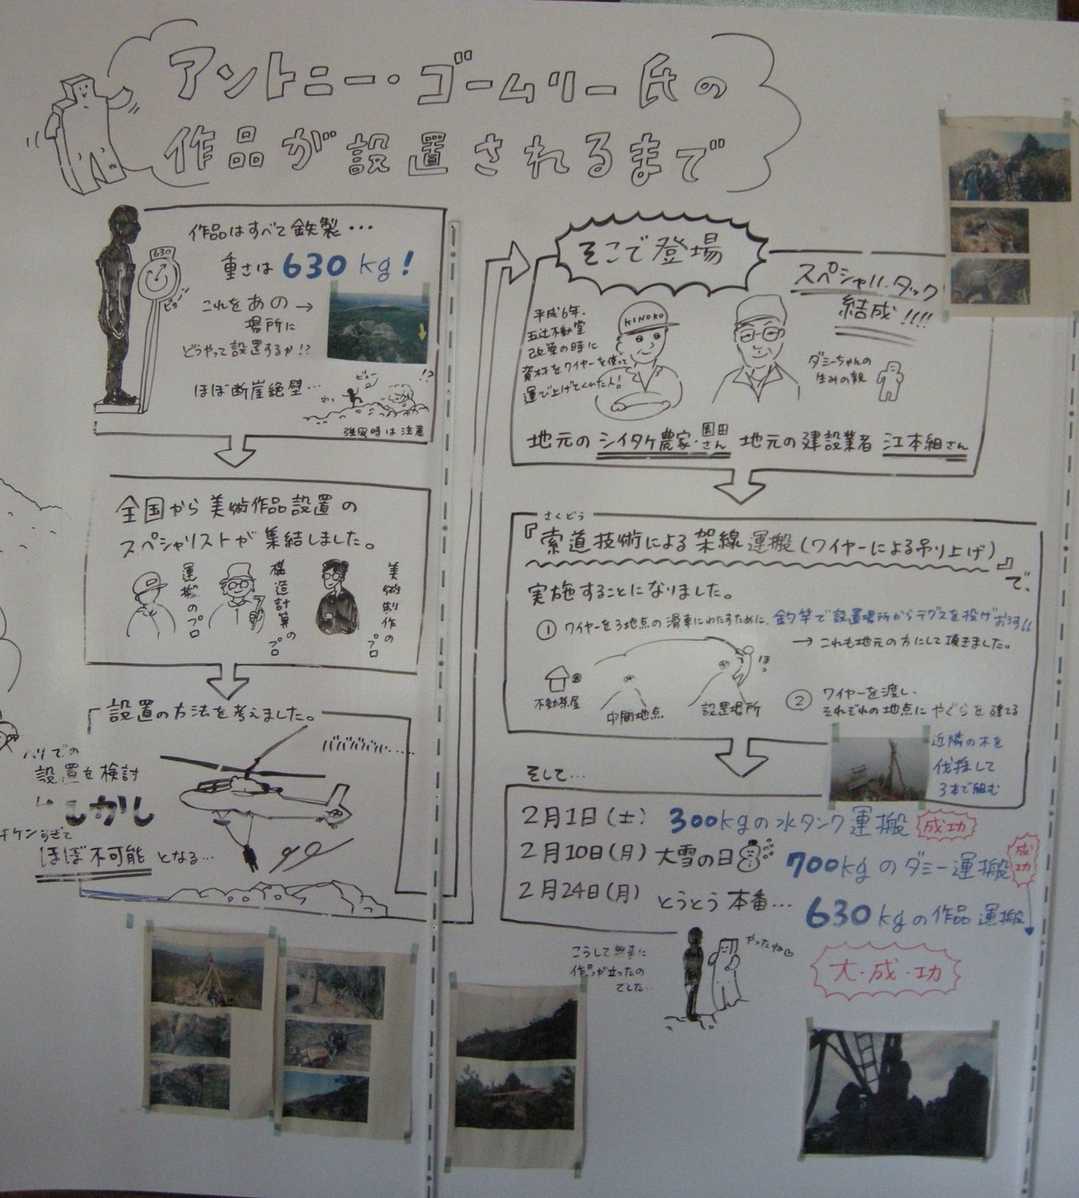 アントニー・ゴームリー氏の
作品が設置されるまで
作品はすべて鉄製・・・
重さは630kg!
630
これをあの→
場所に
どうやって設置するか!?
ほぼ断崖絶壁…
ビュー
!?
強風時は注意
全国から美術作品設置の
スペシャリストが集結しました。
運搬のプロ
構造計算のプロ
美術制作のプロ
設置の方法を考えました。
バババババ……
ヘリでの
設置を検討
しかし
キケンすぎて
ほぼ不可能となる…
そこで登場
スペシャルタッグ
結成!!!!
平成6年、
五辻不動堂
改築の時に
資材をワイヤーを使って
運び上げてくれた人!
KINOKO
ダミーちゃんの
生みの親
地元のシイタケ農家・園田さん
地元の建設業者 江本組さん
さくどう
『索道技術による架線運搬(ワイヤーによる吊り上げ)』で、
実施することになりました。
① ワイヤーを3地点の滑車にわたすために、釣竿で設置場所からテグスを投げおろす!!
→これも地元の方にして頂きました。
不動茶屋
中間地点
設置場所
② ワイヤーを渡し、
それぞれの地点にやぐらを建てる
近隣の木を
伐採して
3本で組む
そして…
2月1日(土) 300kgの水タンク運搬 成功
2月10日(月) 大雪の日 700kgのダミー運搬 成功
2月24日(月) とうとう本番… 630kgの作品運搬
大・成・功
こうして無事に
作品が立ったの
でした…
やったね